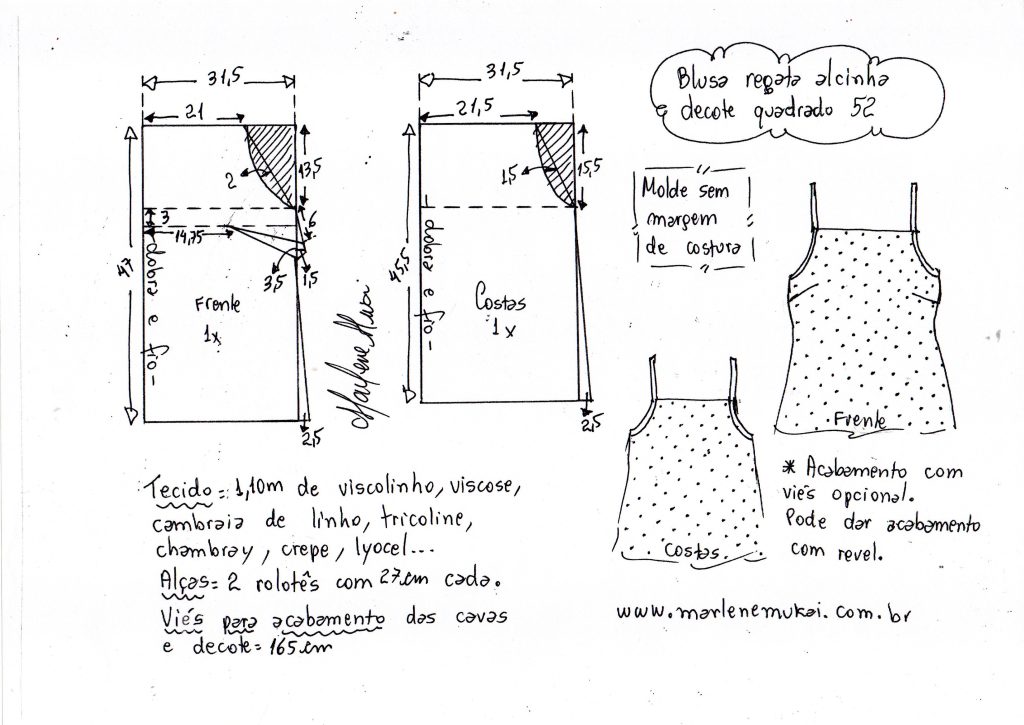 Blusa regata alcinha
e decote quadrado 52
Molde sem
margem
de costura
31,5
21
2
13,5
3
6
14,75
3,5
1,5
47
dobra e fio
Frente
1x
2,5
Marlene Mukai
31,5
21,5
1,5
15,5
45,5
dobra e fio
Costas
1x
2,5
Frente
Costas
Tecido = 1,10m de viscolinho, viscose,
cambraia de linho, tricoline,
chambray, crepe, lyocel...
Alças = 2 rolotês com 27cm cada.
Viés para acabamento das cavas
e decote = 165cm
* Acabamento com
viés opcional.
Pode dar acabamento
com revel.
www.marlenemukai.com.br